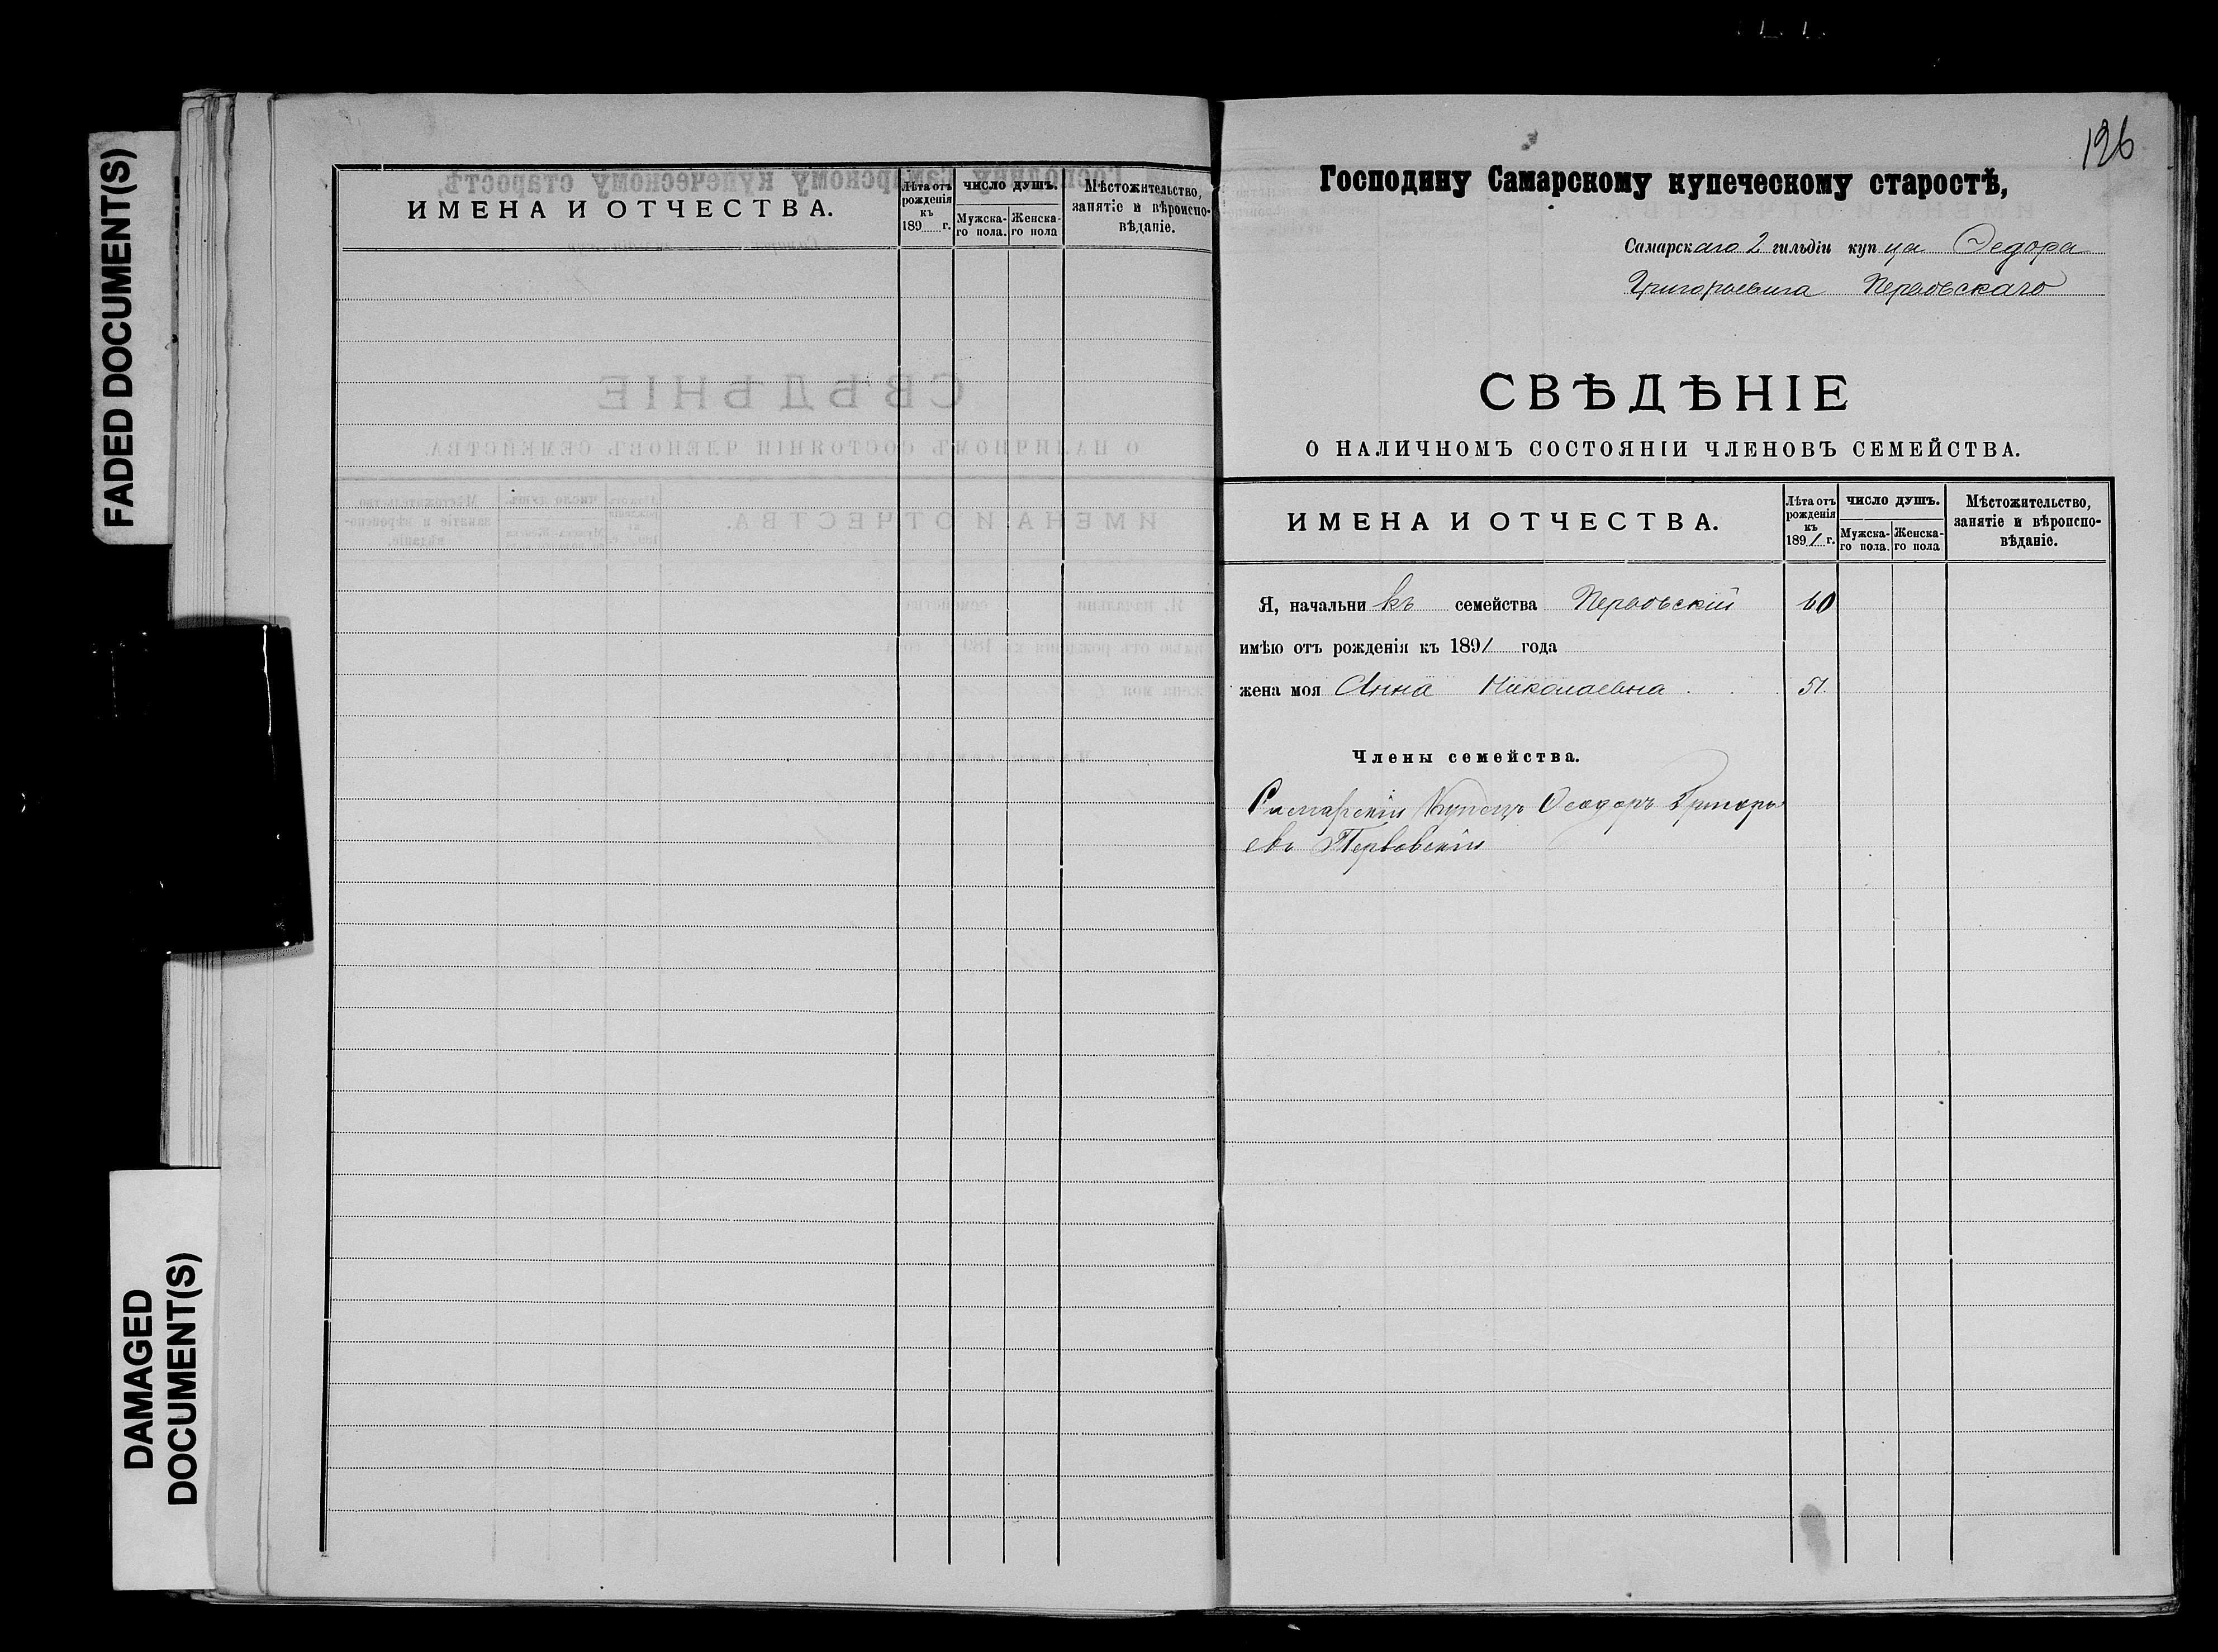 FADED DOCUMENT(S)
DAMAGED
DOCUMENT(S)
ИМЕНА И ОТЧЕСТВА.
Лѣта отъ
рожденія
къ
189 г.
ЧИСЛО ДУШЪ.
Мужска-
го пола.
Женска-
го пола
Мѣстожительство,
занятіе и вѣроиспо-
вѣданіе.
126
Господину Самарскому купеческому старостѣ,
Самарскаго 2 гильдіи купца Федора
Григорьевича Перовскаго
СВѢДѢНІЕ
О НАЛИЧНОМЪ СОСТОЯНІИ ЧЛЕНОВЪ СЕМЕЙСТВА.
ИМЕНА И ОТЧЕСТВА.
Лѣта отъ
рожденія
къ
1891 г.
ЧИСЛО ДУШЪ.
Мужска-
го пола.
Женска-
го пола
Мѣстожительство,
занятіе и вѣроиспо-
вѣданіе.
Я, начальникъ семейства Перовскій 60
имѣю отъ рожденія къ 1891 года
жена моя Анна Николаевна 51.
Члены семейства.
Самарскій Купецъ Феодоръ Григорь
евъ Первовскій